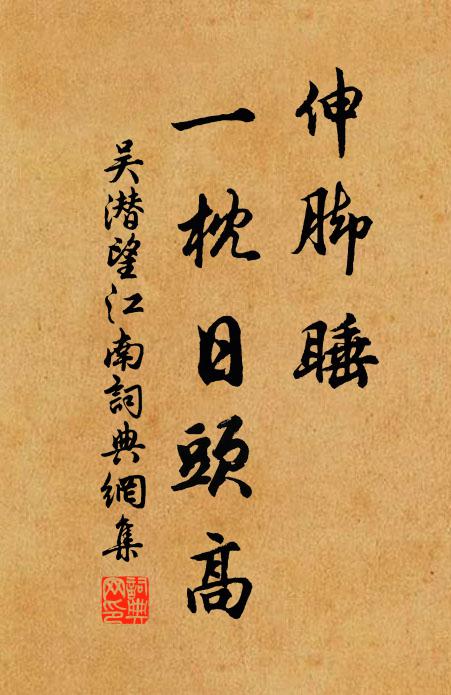 伸脚睡
一枕日頭高
吴潜望江南詞典網集
詞典网印